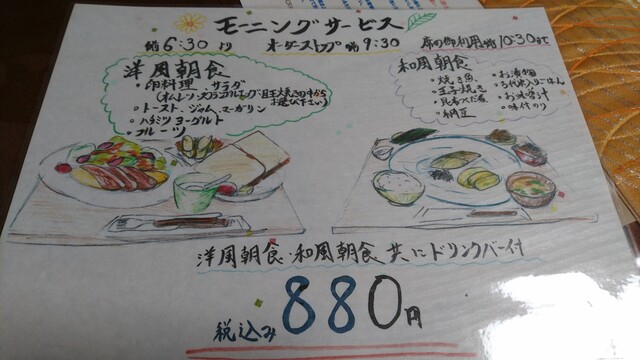 モーニングサービス
朝6:30より オーダーストップ 朝9:30 席の御利用 朝10:30まで
洋風朝食
・卵料理、サラダ
(オムレツ・スクランブルエッグ・目玉焼きの中から
お選び下さい)
・トースト、ジャム、マーガリン
・ハチミツヨーグルト
・フルーツ
和風朝食
・焼き魚
・玉子焼き
・昆布つくだ煮
・納豆
・お漬物
・古代米入りごはん
・お味噌汁
・味付のり
洋風朝食・和風朝食 共にドリンクバー付
税込み 880円